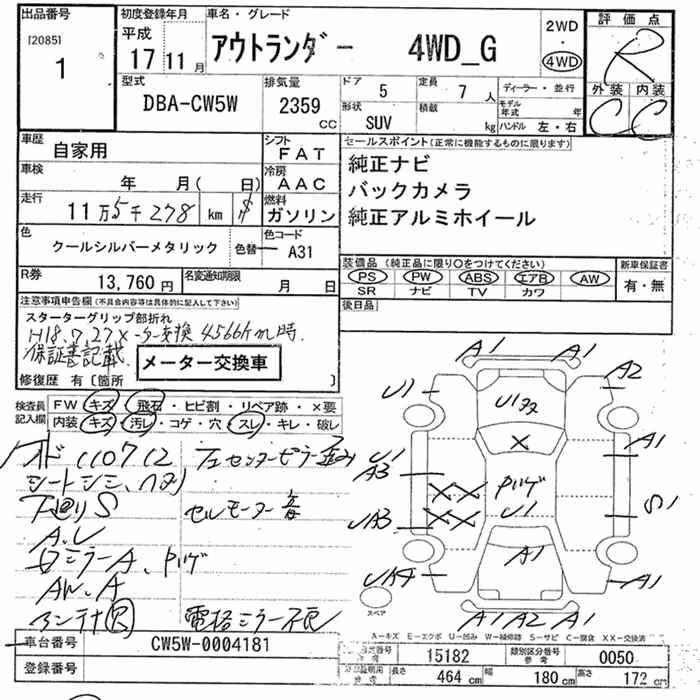 出品番号
[2085]
1
初度登録年月
平成
17 11 月
車名・グレード
アウトランダー 4WD_G
2WD
・
4WD
評価点
R
外装 内装
C C
型式
DBA-CW5W
排気量
2359
CC
ドア
5
定員
7 人
形状
SUV
積載
kg
ディーラー・並行
モデル年式 年
ハンドル 左・右
車歴
自家用
シフト
FAT
車検
年 月( 日)
冷房
AAC
走行
11万5千278 km
燃料
ガソリン
色
クールシルバーメタリック
色替
色コード
A31
R券
13,760 円
名変通知期限
月 日
セールスポイント(正常に機能するものに限ります)
純正ナビ
バックカメラ
純正アルミホイール
装備品(純正品に限り○をつけてください)
PS PW ABS エアB AW
SR ナビ TV カワ
新車保証書
有・無
後日品
注意事項申告欄(不具合内容等は具体的に記入して下さい)
スターターグリップ部折れ
H18.7.27メーター交換 4566km時
保証書記載
メーター交換車
修復歴 有〔箇所 〕
検査員
記入欄
FW キズ・飛石・ヒビ割・リペア跡・×要
内装 キズ・汚レ・コゲ・穴・スレ・キレ・破レ
シートシミ、
下廻りS
セルモーター
A.U
ミラーA、
AW.A
アンテナ欠
電格ミラー不良
A1 A1
U1 A2
U1
×
U1 A1
A3
U1 S1
UA3
A1
UA4 A1
A1 A2 A1
スペア
A−キズ E−エクボ U−凹み W−補修跡 S−サビ C−腐食 XX−交換済
車台番号
CW5W-0004181
登録番号
15182
類別区分番号
0050
長さ 464 cm
幅 180 cm
高さ 172 cm